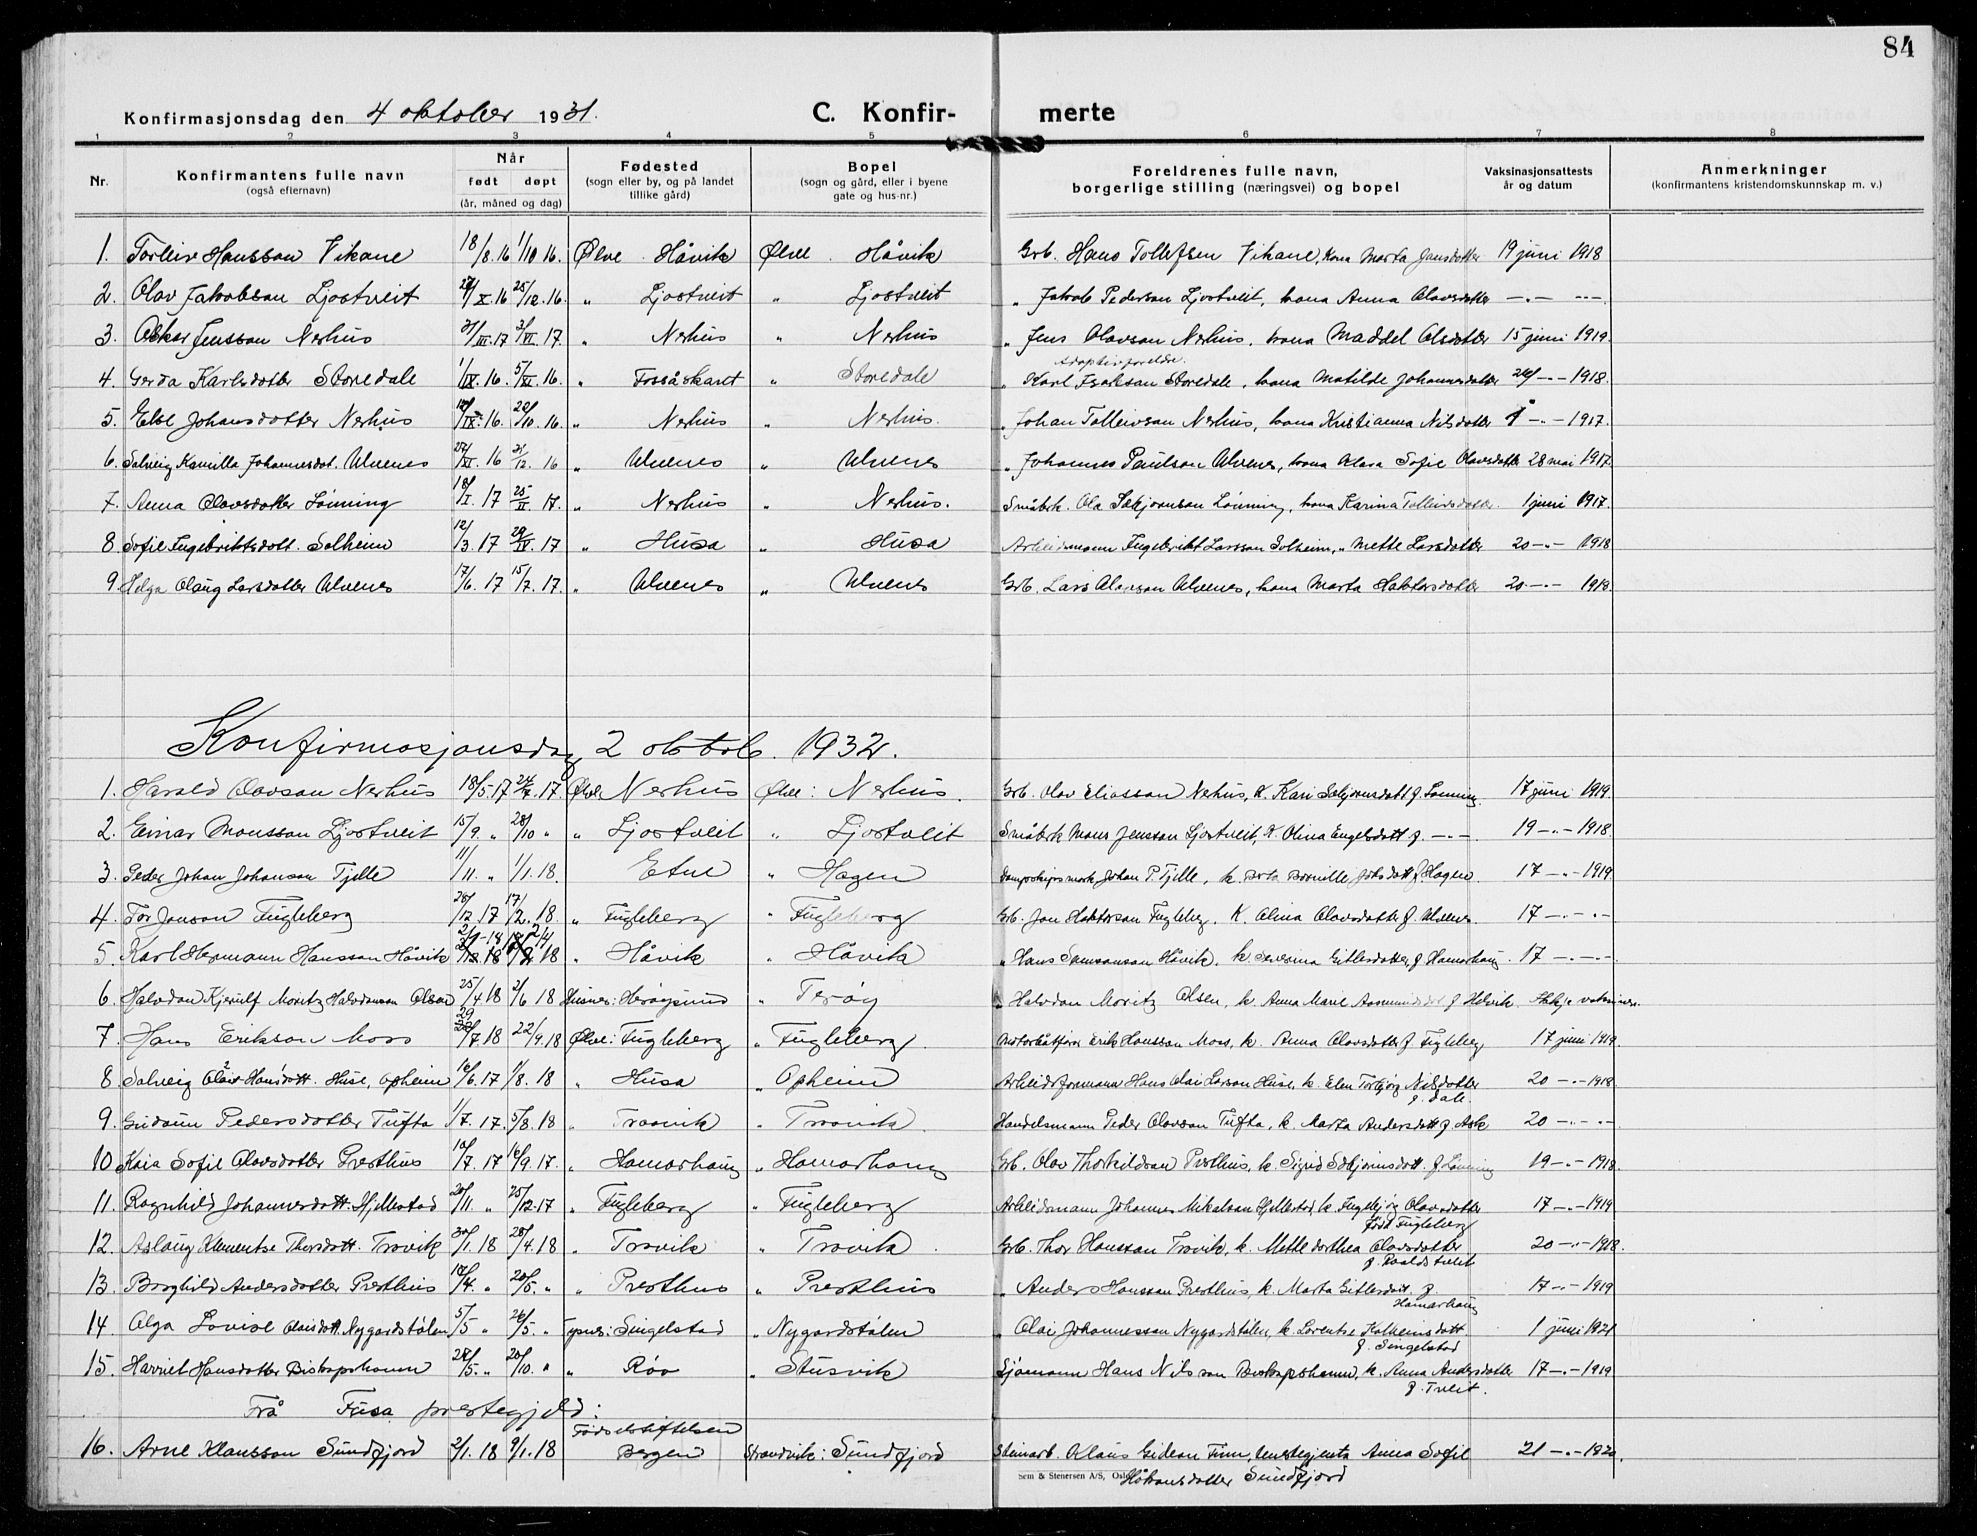 84
Konfirmasjonsdag den 4 oktober 1931. C. Konfir- merte
1 2 3 4 5 6 7 8
Nr. Konfirmantens fulle navn (også efternavn) Når født døpt (år, måned og dag) Fødested (sogn eller by, og på landet tillike gård) Bopel (sogn og gård, eller i byene gate og hus-nr.) Foreldrenes fulle navn, borgerlige stilling (næringsvei) og bopel Vaksinasjonsattests år og datum Anmerkninger (konfirmantens kristendomskunnskap m. v.)
1. Torleiv Hansson Vikane 18/8.16 1/10 16. Ølve Håvik Ølve Håvik Grb. Hans Tollefsen Vikane, kona Marta Jonsdotter 19 juni 1918
2. Olav Jakobson Ljostveit /X.16 25/12.16. " Ljostveit " Ljostveit " Jakob Pederson Ljostveit, kona Anna Olavsdotter —.— ---
3. Oskar Jensson Nerhus 31/III.17 3/VI.17. " Nerhus " Nerhus " Jens Olavson Nerhus, kona Maddel Olsdotter 15 juni 1919.
Adoptivforeldr.
4. Gerda Karlsdotter Storedale 1/IX.16. 5/XI.16. " Fossåskaret " Storedale " Karl Isakson Storedale, kona Matilde Johannesdotter 26/ -.- 1918.
5. Else Johansdotter Nerhus /IX.16. /10.16. " Nerhus " Nerhus. " Johan Tolleivson Nerhus, kona Kristianna Nilsdotter -.- 1917.
6. Solveig Kamilla Johannesdot. Ulvenes /XI.16 31/12.16 " Ulvenes " Ulvenes " Johannes Paulson Ulvenes, kona Klara Sofie Olavsdotter 28 mai 1917.
7. Anna Olavsdotter Lønning 18/I.17 25/II.17. " Nerhus " Nerhus. Småbrk. Ola Sebjørnson Lønning, kona Karina Tolleivsdotter. 1 juni 1917.
8 Sofie Ingebriktsdott. Solheim 12/3.17 29/IV.17 " Husa " Husa Arbeidsmann Ingebrikt Larsson Solheim, " Mette Larsdotter 20 -.- 1918
9. Helga Olaug Larsdotter Ulvenes 17/6.17 15/7.17. " Ulvenes " Ulvenes Grb. Lars Olavson Ulvenes, kona Marta Haktorsdotter 20.-.- 1918.
Konfirmasjonsdag 2 oktob. 1932.
1. Harald Olavson Nerhus 18/5.17 24/.17. Ølve Nerhus Ølve: Nerhus. Grb. Olav Eliasson Nerhus, k. Kari Sebjørnsdott f. Lønning. 17 juni 1919.
2. Einar Monsson Ljostveit 15/9. " 28/10 " " Ljostveit " Ljostveit Småbrk Mons Jensson Ljostveit, k. Olina Engelsdott f. -.- 19 -.- 1918.
3. Peder Johan Johanson Tjelle 11/11. " 1/1.18. Etne " Hagen Dampskipsmask Johan P. Tjelle, k. f. Hagen. 17 -.- 1919.
4. Tor Jonson Fugleberg /12.17 17/2.18. " Fugleberg " Fugleberg Grb. Jon Haktorson Fugleberg. k. Olina Olavsdotter f. Ulvenes 17 -.- .-
5. Karl Hermann Hansson Håvik 18 18 " Håvik " Håvik " Hans Samsonson Håvik. k. Severina Gitlesdotter f. Hamarhaug. 17 -.-.-
6. Halvdan Kjerulf Moritz Halvdanson Olsen 25/4.18 2/6 18 Husnes: Herøysund " Terøy " Halvdan Moritz Olsen, k. Anna Marie f. Ikkje vaksinera.
7 Hans Erikson Moss 29/7.18 22/9.18 Ølve: Fugleberg " Fugleberg. Motorbåtfører Erik Hansson Moss, k. Anna Olavsdotter f. Fugleberg 17 juni 1919
8 Solveig Olav Hansdott. Huse, Opheim 16/6.17 1/8.18 " Husa " Opheim Arbeidsformann Hans Olai Larson Huse, k. Elen Torbjørg Nilsdotter f. Dale 20 -.- 1918
9. Gudrun Pedersdotter Tufta 1/7.17. 5/8.18 " Troovik " Troovik. Handelsmann Peder Olavson Tufta, k. Marta Andersdott f. Ask 20 -.-.-
10 Kaia Sofie Olavsdotter Presthus /7.17 16/9.17. " Hamarhaug " Hamarhaug Grb. Olav Thorkildson Presthus, k. Sigrid Sebjørnsdott. f. Lønning 19 -.- 1918.
11. Ragnhild Johannesdott. Hjellestad /11. " 25/12.17 " Fugleberg " Fugleberg Arbeidsmann Johannes Mikalson Hjellestad, k. Ingebjørg Olavsdotter født Fugleberg 17 -.- 1919
12. Aslaug Klementse Thorsdott. Trovik 30/1.18 28/4.18 " Trovik " Trovik. Grb. Thor Hansson Trovik, k. Mette Dorthea Olavsdotter f. Roaldstveit 20 -.- 1918.
13. Borghild Andersdotter Presthus /4. " 20/5. " " Presthus " Presthus " Anders Hansson Presthus, k. Marta Gitlesdott. f. Hamarhaug 17 -.- 1919
14. Olga Lovise Olaisdott. Nygardstølen 5/5 " 26/5. " Tysnes: Singelstad " Nygardstølen " Olai Johannesson Nygardstølen, k. Lorentse f. Singelstad 1 juni 1921
15. Harriet Hansdotter Biskopshavn /5. " 20/10. " " Røo " Stusvik Sjømann Hans Nilsson Biskopshavn, k. Anna Andersdotter f. Tveit. 17 -.- 1919
Frå Fusa prestegjeld:
16. Arne Klausson Sundfjord 2/1.18 9/1.18 Fødselsstiftelsen Bergen Strandvik: Sundfjord Steinarb. Klaus Gideon Finn, Anna Sofie Håkonsdotter Sundfjord 21 -.- 1920.
Sem & Stenersen A/S, Oslo